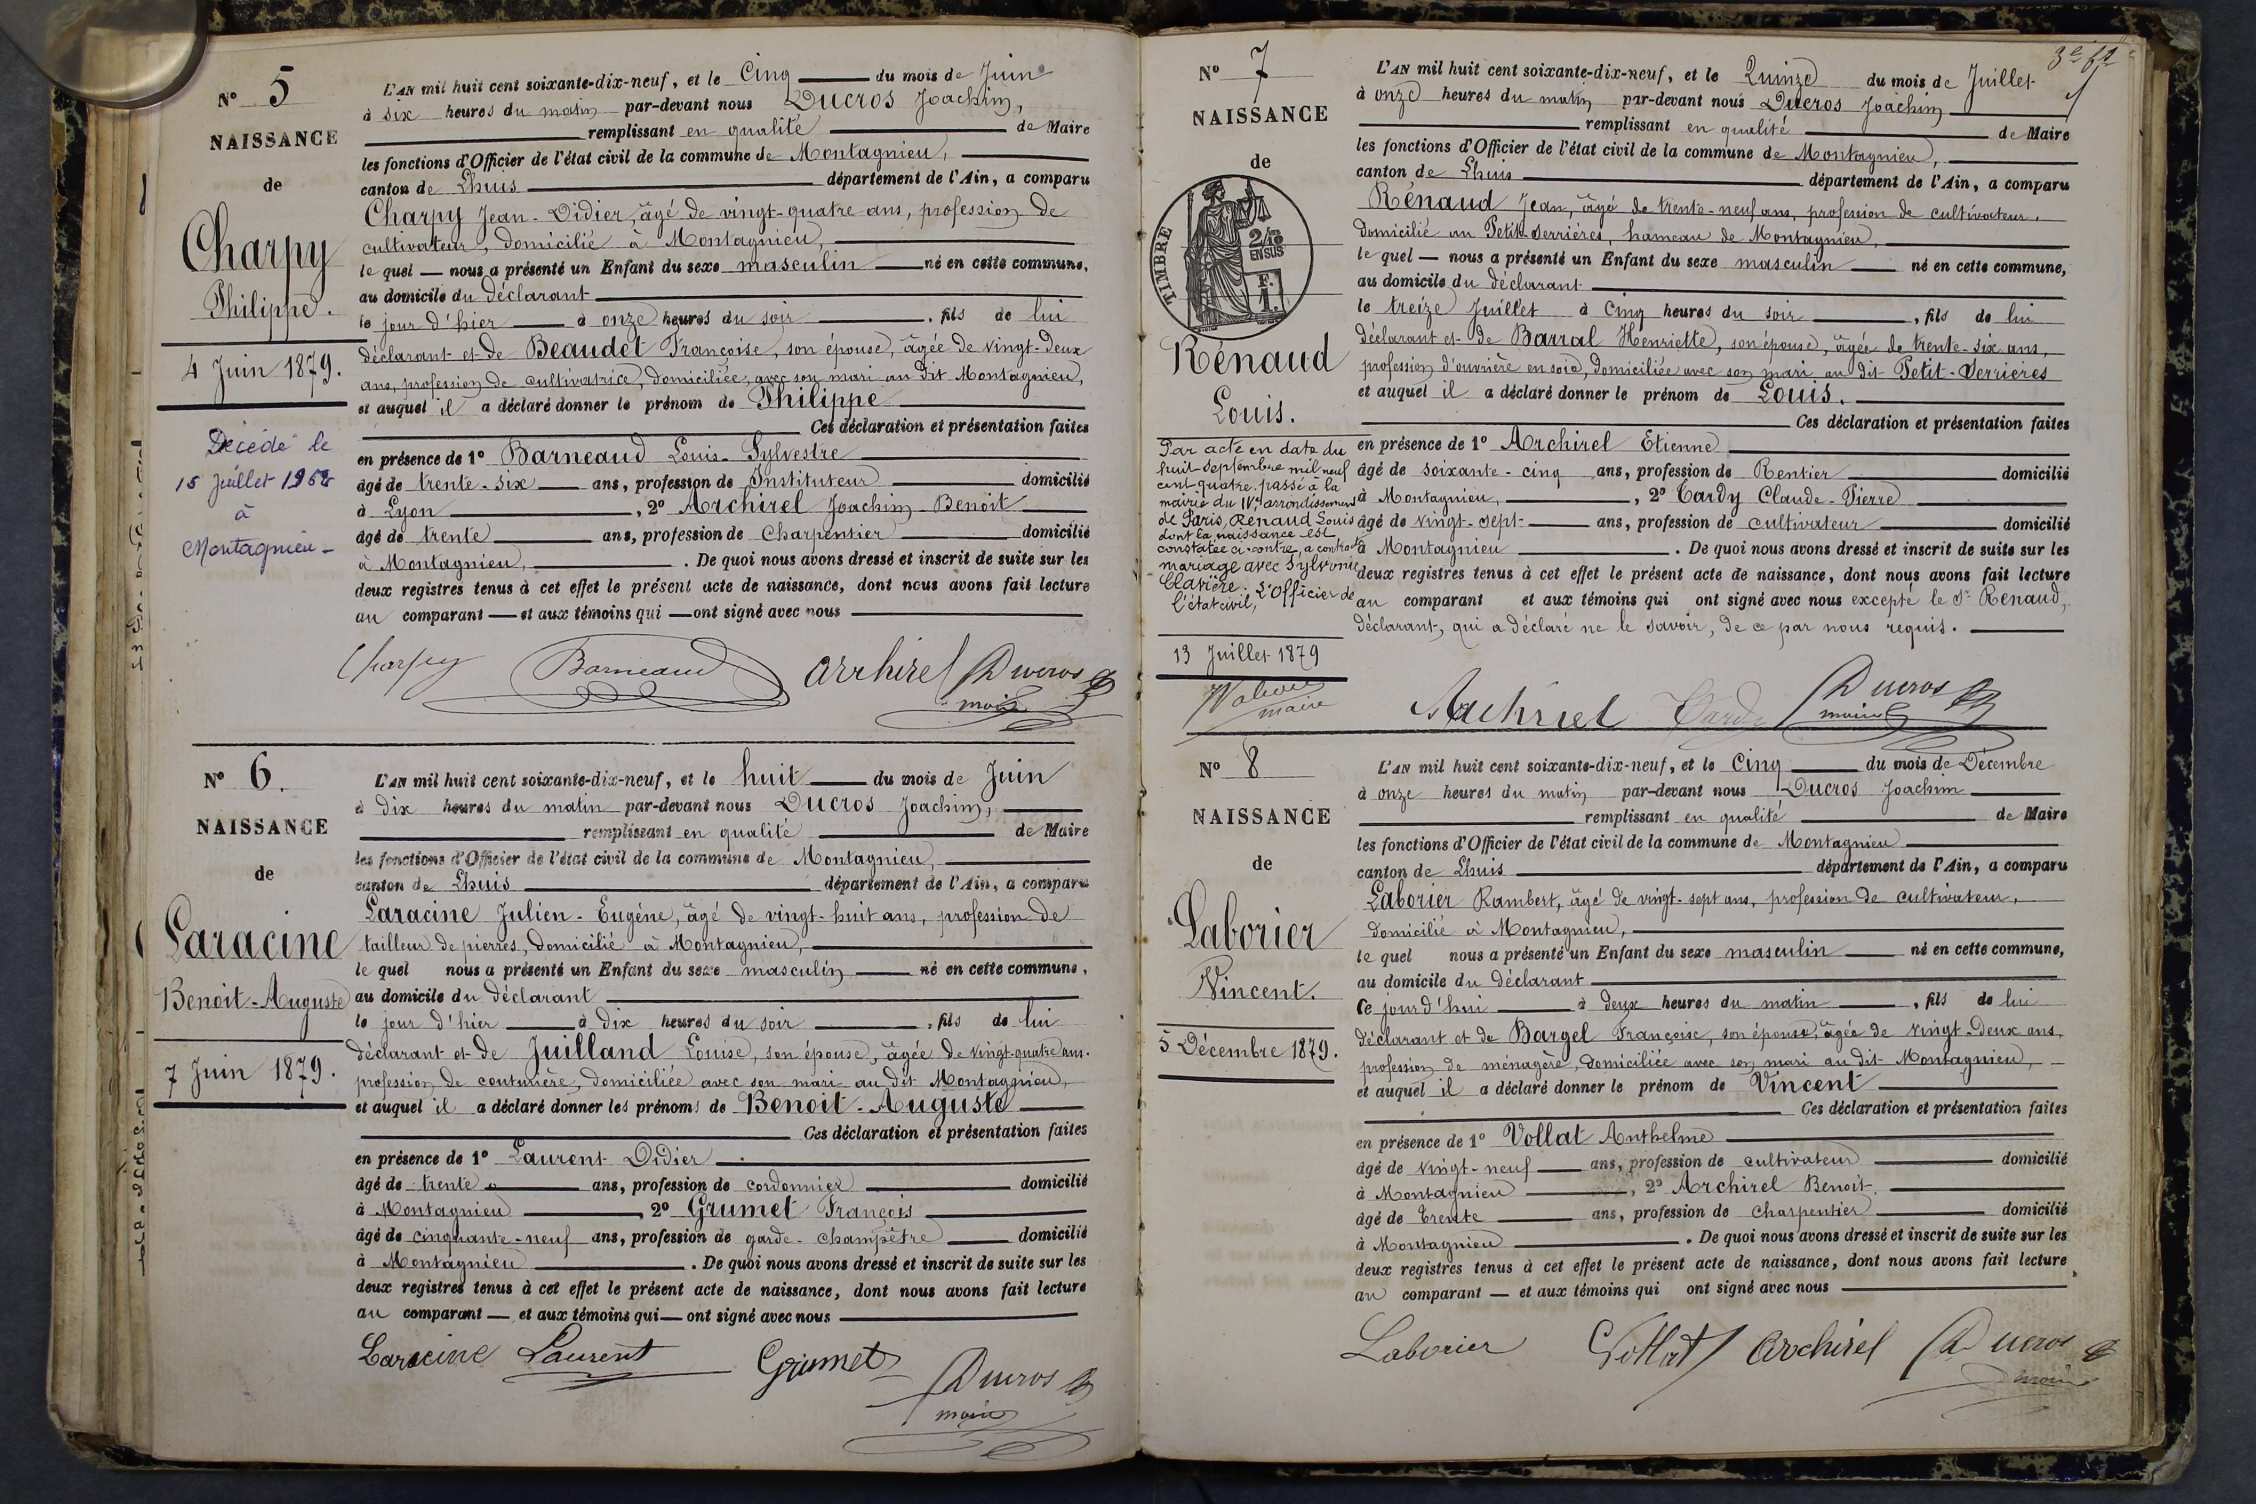 N° 5
NAISSANCE
de
Charpy
Philippe.
4 Juin 1879.
Décédé le
15 Juillet 1968
à
Montagnieu
L'AN mil huit cent soixante-dix-neuf, et le Cinq du mois de Juin
à six heures du matin par-devant nous Ducros Joachim,
remplissant en qualité de Maire
les fonctions d'Officier de l'état civil de la commune de Montagnieu,
canton de Lhuis département de l'Ain, a comparu
Charpy Jean-Didier, âgé de vingt-quatre ans, profession de
cultivateur, domicilié à Montagnieu,
le quel nous a présenté un Enfant du sexe masculin né en cette commune,
au domicile du déclarant
le jour d'hier à onze heures du soir, fils de lui
déclarant et de Beaudet Françoise, son épouse, âgée de vingt-deux
ans, profession de cultivatrice, domiciliée avec son mari au dit Montagnieu,
et auquel il a déclaré donner le prénom de Philippe
Ces déclaration et présentation faites
en présence de 1° Barneaud Louis-Sylvestre
âgé de trente-six ans, profession de Instituteur domicilié
à Lyon, 2° Archirel Joachim-Benoit
âgé de trente ans, profession de Charpentier domicilié
à Montagnieu, . De quoi nous avons dressé et inscrit de suite sur les
deux registres tenus à cet effet le présent acte de naissance, dont nous avons fait lecture
au comparant et aux témoins qui ont signé avec nous
Charpy Barneaud Archirel Ducros
maire
N° 6.
NAISSANCE
de
Laracine
Benoit-Auguste
7 Juin 1879.
L'AN mil huit cent soixante-dix-neuf, et le huit du mois de Juin
à dix heures du matin par-devant nous Ducros Joachim,
remplissant en qualité de Maire
les fonctions d'Officier de l'état civil de la commune de Montagnieu,
canton de Lhuis département de l'Ain, a comparu
Laracine Julien-Eugéne, âgé de vingt-huit ans, profession de
tailleur de pierres, domicilié à Montagnieu,
le quel nous a présenté un Enfant du sexe masculin né en cette commune,
au domicile du déclarant
le jour d'hier à dix heures du soir, fils de lui
déclarant et de Juilland Louise, son épouse, âgée de vingt-quatre ans.
profession de couturière, domiciliée avec son mari au dit Montagnieu,
et auquel il a déclaré donner les prénoms de Benoit-Auguste
Ces déclaration et présentation faites
en présence de 1° Laurent Didier
âgé de trente ans, profession de cordonnier domicilié
à Montagnieu, 2° Grumet François
âgé de cinquante-neuf ans, profession de garde-champêtre domicilié
à Montagnieu. De quoi nous avons dressé et inscrit de suite sur les
deux registres tenus à cet effet le présent acte de naissance, dont nous avons fait lecture
au comparant et aux témoins qui ont signé avec nous
Laracine Laurent Grumet Ducros
maire
3e ft
N° 7
NAISSANCE
de
TIMBRE
2/10
EN SUS
F.
1.
Rénaud
Louis.
Par acte en date du
huit septembre mil neuf
cent quatre passé à la
mairie du IVe arrondissement
de Paris, Renaud Louis
dont la naissance est
constatée ci-contre, a contracté
mariage avec Sylvonie
Clavière. L'Officier de
l'état civil,
13 Juillet 1879
maire
L'AN mil huit cent soixante-dix-neuf, et le Quinze du mois de Juillet
à onze heures du matin par-devant nous Ducros Joachim
remplissant en qualité de Maire
les fonctions d'Officier de l'état civil de la commune de Montagnieu,
canton de Lhuis département de l'Ain, a comparu
Rénaud Jean, âgé de trente-neuf ans, profession de cultivateur.
domicilié au Petit-Verrières, hameau de Montagnieu,
le quel nous a présenté un Enfant du sexe masculin né en cette commune,
au domicile du déclarant
le treize Juillet à cinq heures du soir, fils de lui
déclarant et de Barral Henriette, son épouse, âgée de trente-six ans,
profession d'ouvrière en soie, domiciliée avec son mari au dit Petit-Verrières
et auquel il a déclaré donner le prénom de Louis.
Ces déclaration et présentation faites
en présence de 1° Archirel Etienne
âgé de soixante-cinq ans, profession de Rentier domicilié
à Montagnieu, , 2° Cardy Claude-Pierre
âgé de vingt-sept ans, profession de cultivateur domicilié
à Montagnieu. De quoi nous avons dressé et inscrit de suite sur les
deux registres tenus à cet effet le présent acte de naissance, dont nous avons fait lecture
au comparant et aux témoins qui ont signé avec nous excepté le Sr Renaud,
déclarant, qui a déclaré ne le savoir, de ce par nous requis.
Archirel Cardy Ducros
maire
N° 8
NAISSANCE
de
Laborier
Vincent.
5 Décembre 1879.
L'AN mil huit cent soixante-dix-neuf, et le Cinq du mois de Décembre
à onze heures du matin par-devant nous Ducros Joachim
remplissant en qualité de Maire
les fonctions d'Officier de l'état civil de la commune de Montagnieu
canton de Lhuis département de l'Ain, a comparu
Laborier Rambert, âgé de vingt-sept ans, profession de cultivateur,
domicilié à Montagnieu,
le quel nous a présenté un Enfant du sexe masculin né en cette commune,
au domicile du déclarant
Ce jour d'hui à deux heures du matin, fils de lui
déclarant et de Bargel Françoise, son épouse, âgée de vingt-deux ans,
profession de ménagère, domiciliée avec son mari au dit Montagnieu,
et auquel il a déclaré donner le prénom de Vincent
Ces déclaration et présentation faites
en présence de 1° Vollat Anthelme
âgé de vingt-neuf ans, profession de cultivateur domicilié
à Montagnieu, 2° Archirel Benoit
âgé de trente ans, profession de Charpentier domicilié
à Montagnieu. De quoi nous avons dressé et inscrit de suite sur les
deux registres tenus à cet effet le présent acte de naissance, dont nous avons fait lecture
au comparant et aux témoins qui ont signé avec nous
Laborier Vollat Archirel Ducros
maire